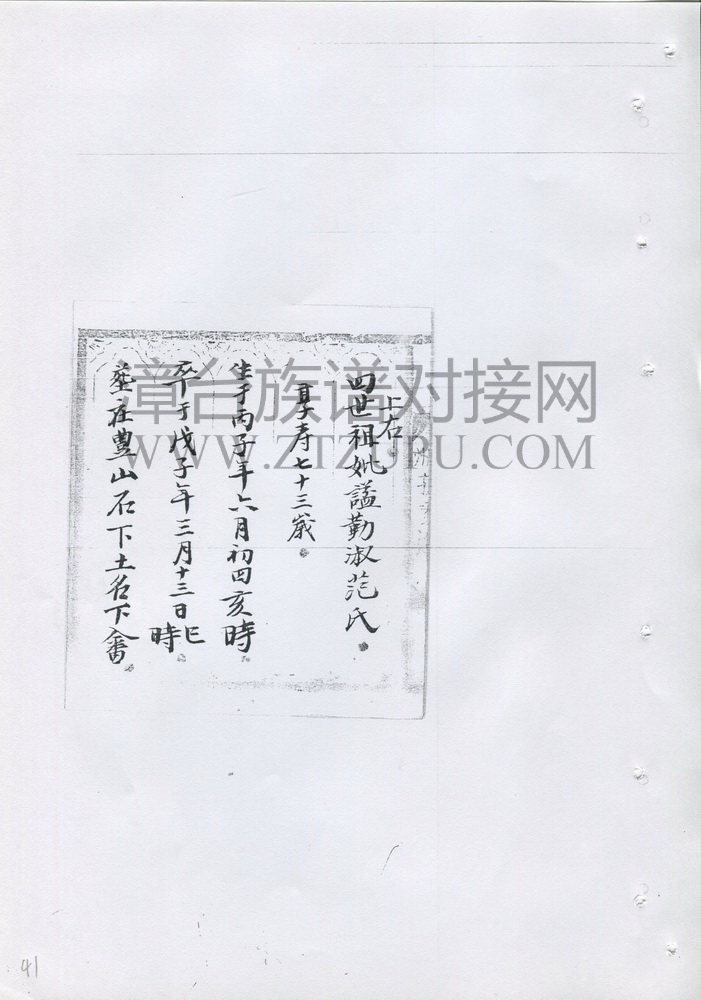 上右
四世祖妣謚勤淑范氏
享寿七十三歲
生于丙子年六月初四亥時
卒于戊子年三月十三日巳時
葬在豊山石下土名下畬
章台族谱对接网
WWW.ZTZUPU.COM
41